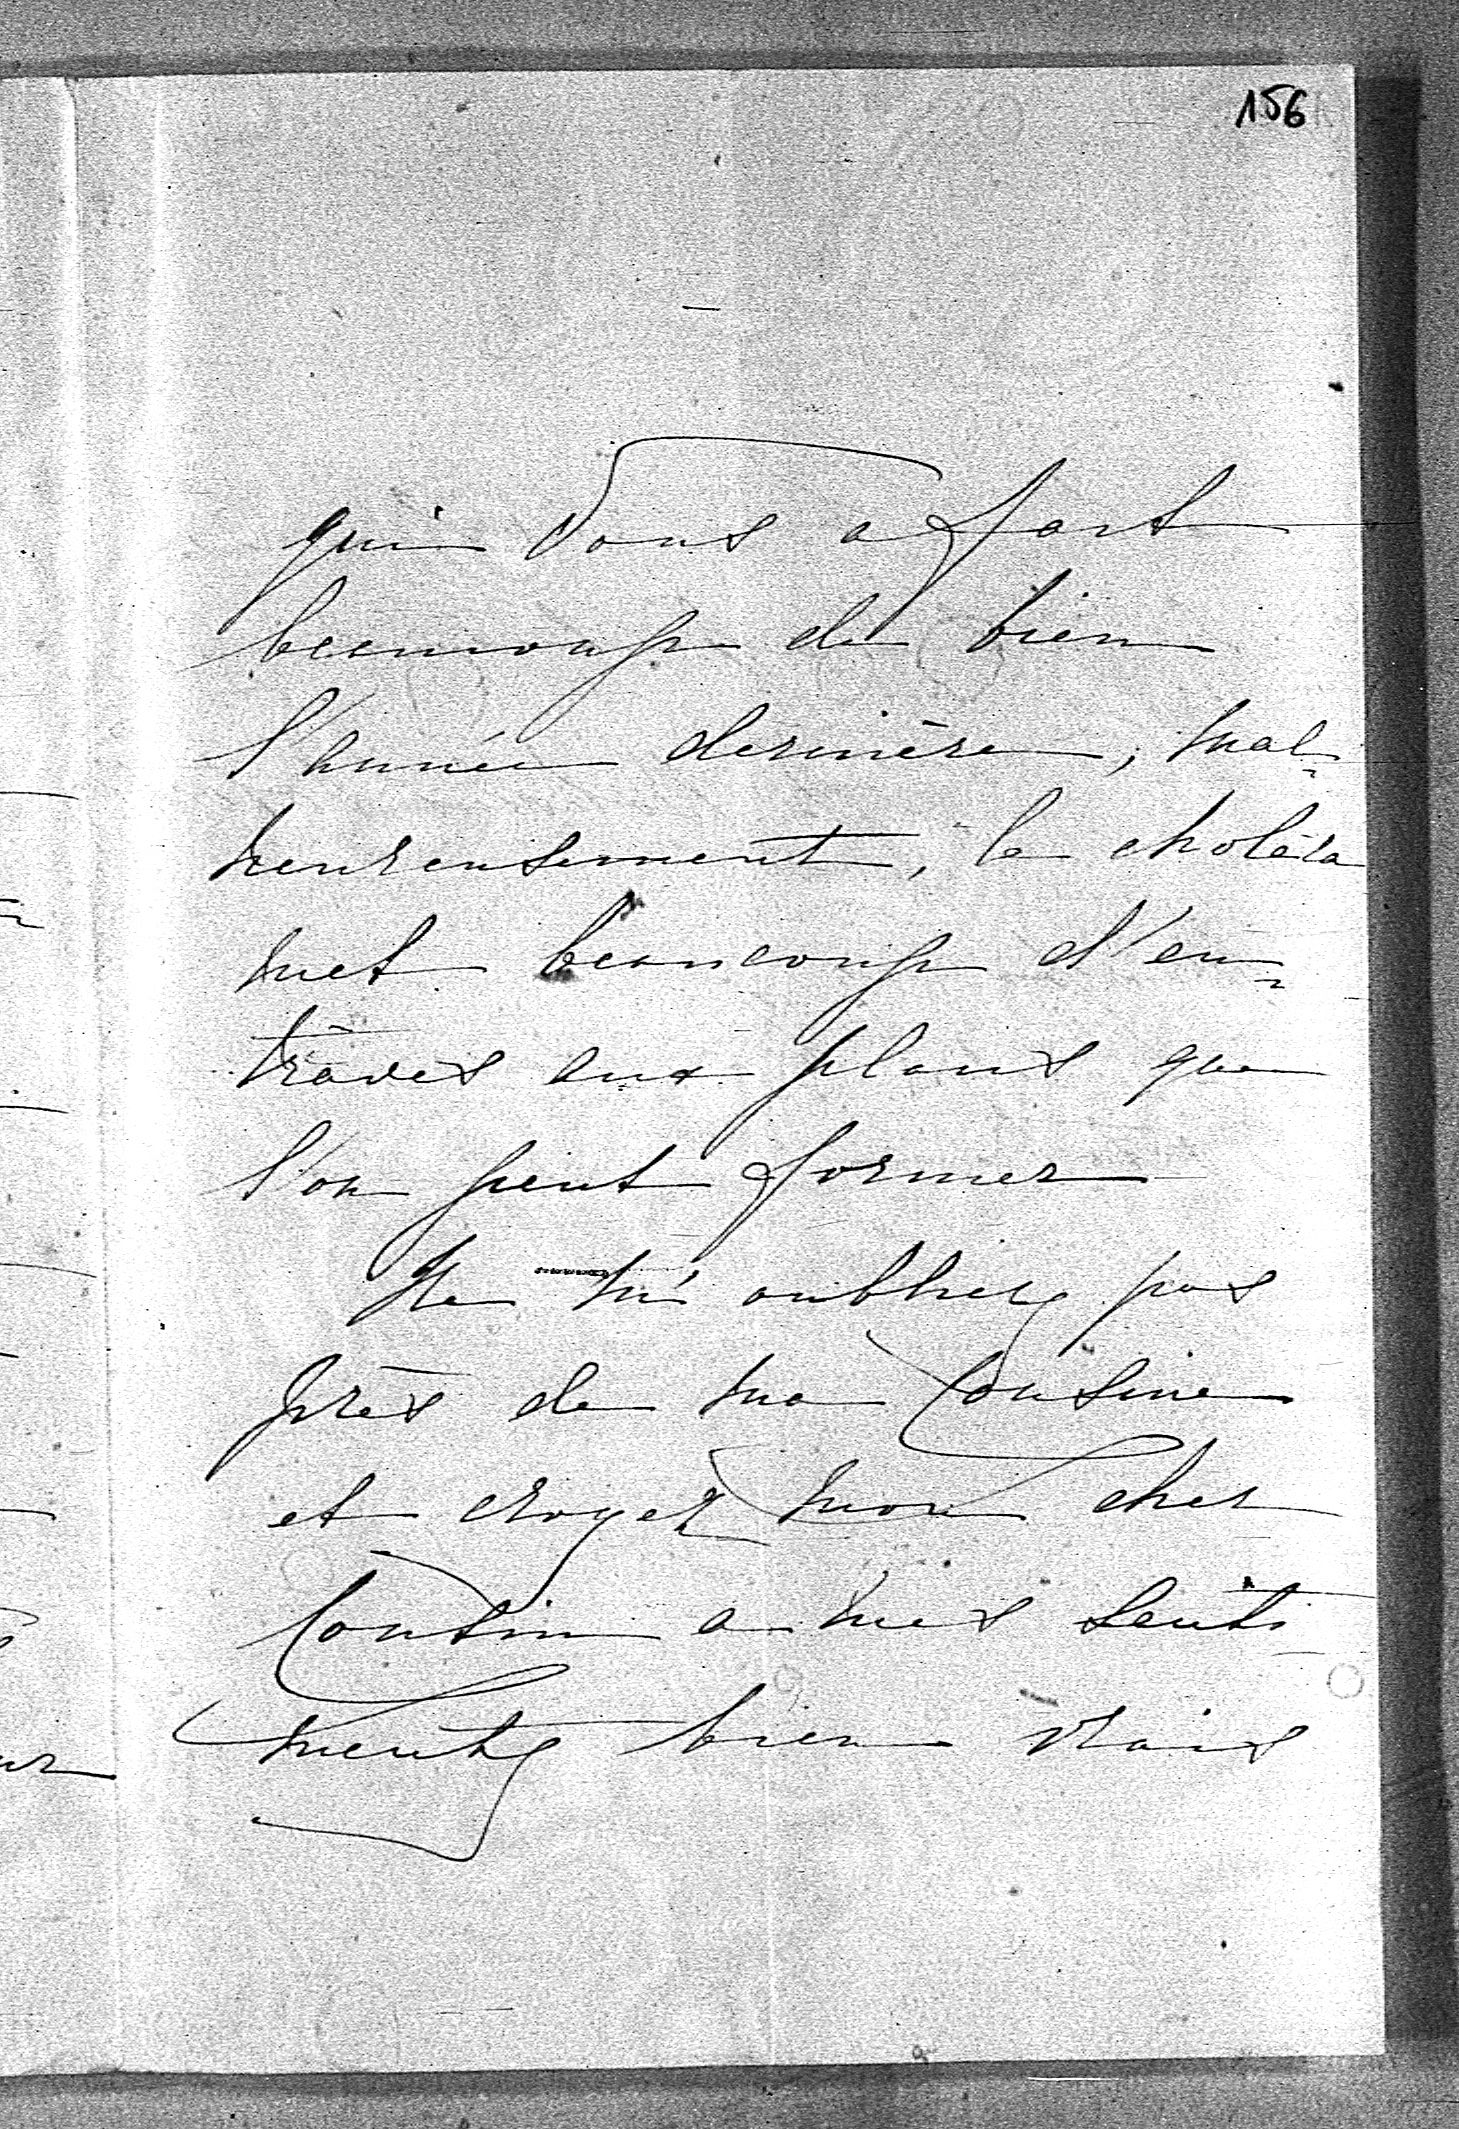 156
qui vous a fait
beaucoup de bien
l'année dernière, mal-
heureusement, le choléra
met beaucoup d'en-
traves aux plans que
l'on peut former
Ne m'oubliez pas
près de ma Cousine
et croyez mon cher
Cousin a mes senti
ments bien vrais